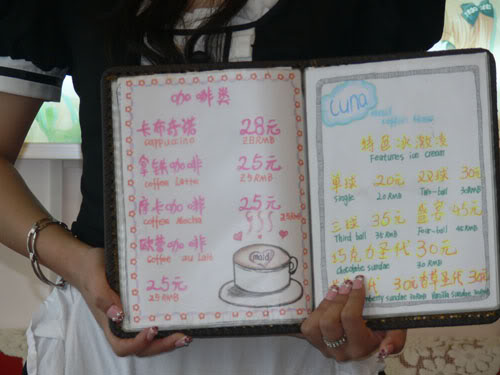 咖啡类
卡布奇诺 28元
cappuccino 28RMB
拿铁咖啡 25元
coffee Latte 25RMB
摩卡咖啡 25元
coffee Mocha 25RMB
欧蕾咖啡
coffee au Lait
25元
25RMB
maid
Luna
maid
coffee House
特色冰激凌
Features ice cream
单球 20元 双球 30元
Single 20RMB Two-ball 30RMB
三球 35元 45元
Third ball 35RMB Four-ball 45RMB
巧克力圣代 30元
chocolate sundae 30RMB
圣代 30元 香草圣代 30元
sundae 30RMB Vanilla sundae 30RMB